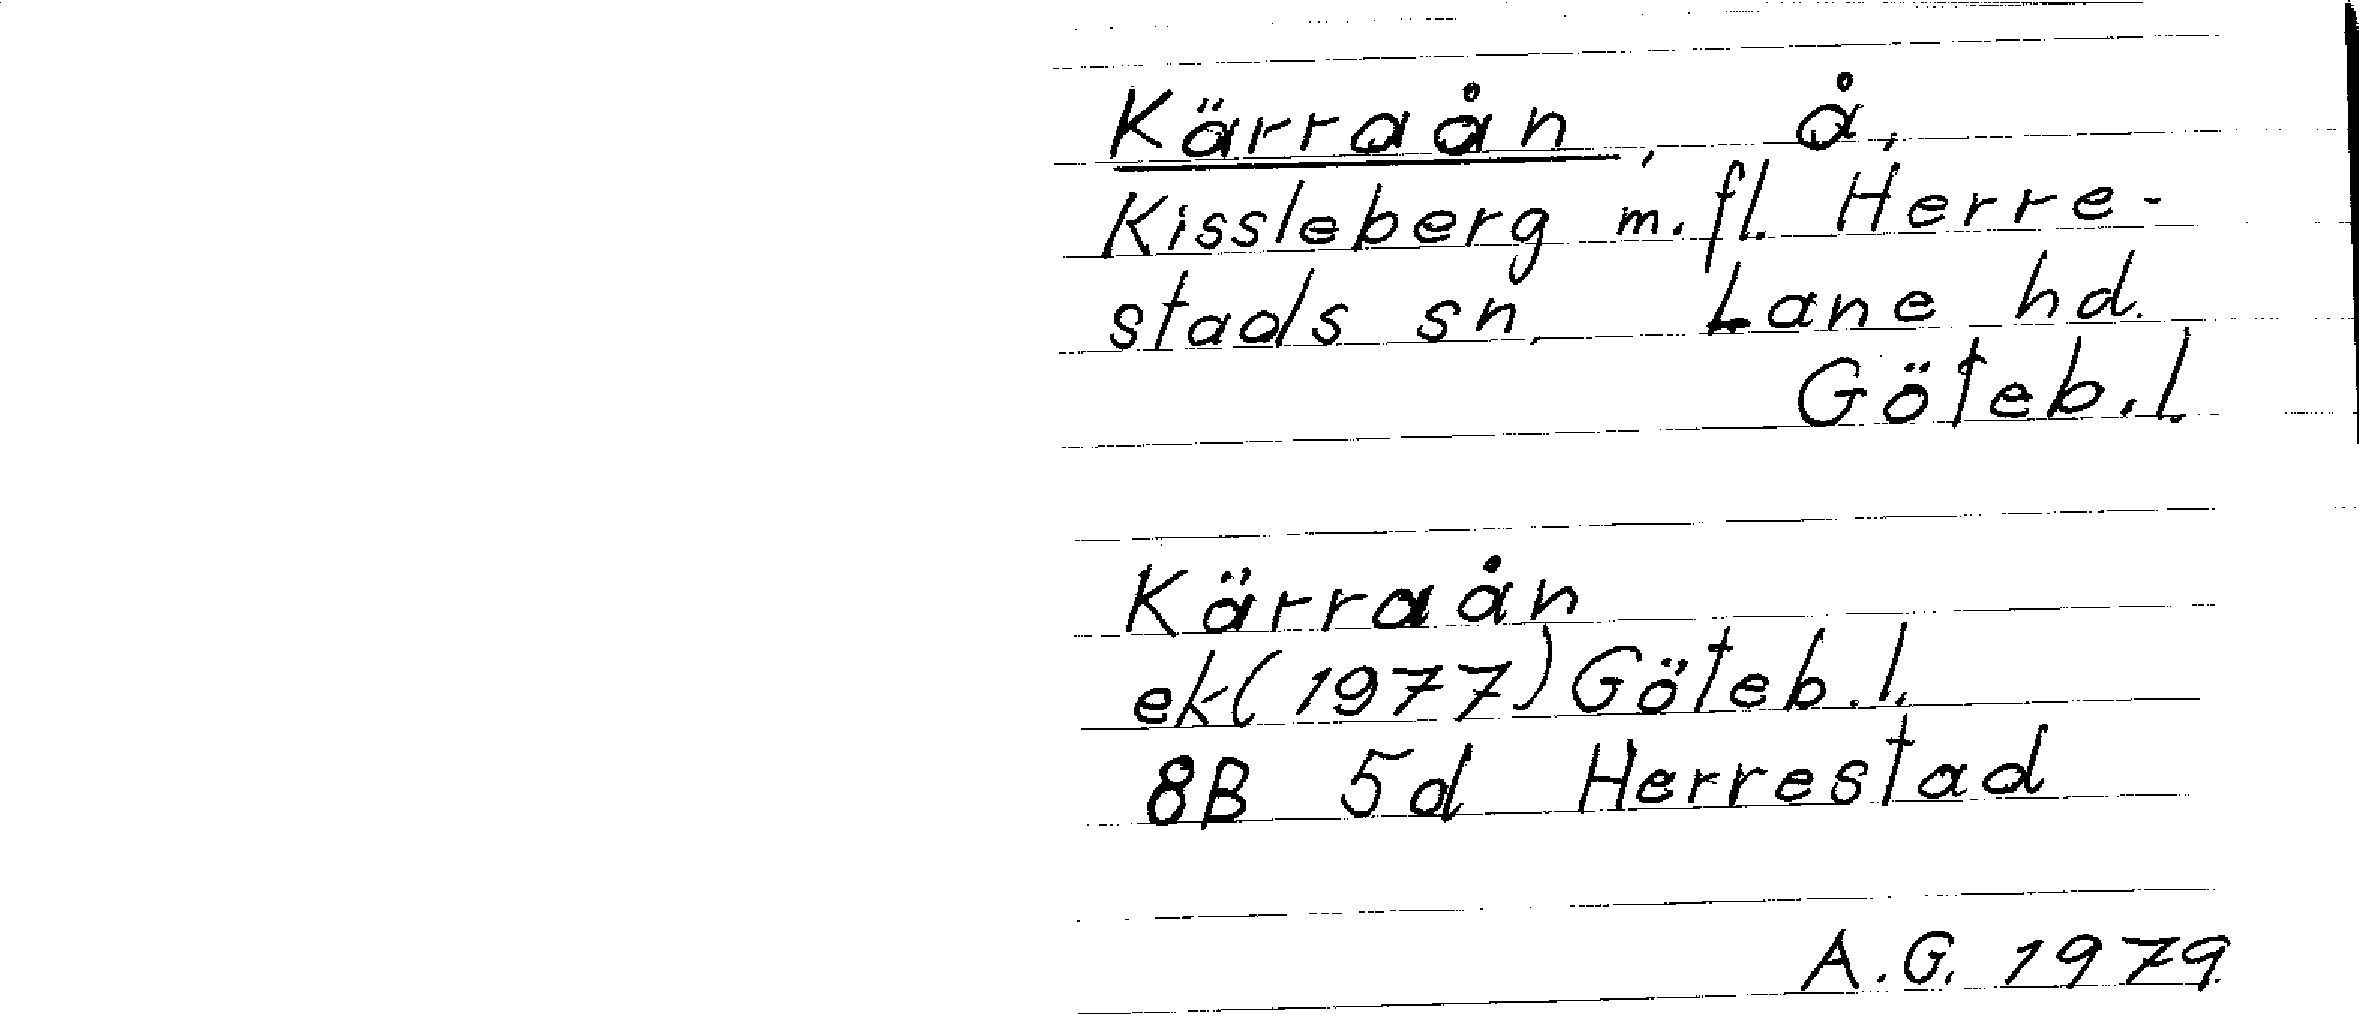 Kärraån, å,
Kissleberg m.fl. Herre-
stads sn. Lane hd.
Göteb.l.
Kärraån
ek(1977) Göteb.l.
8B 5d Herrestad
A.G. 1979